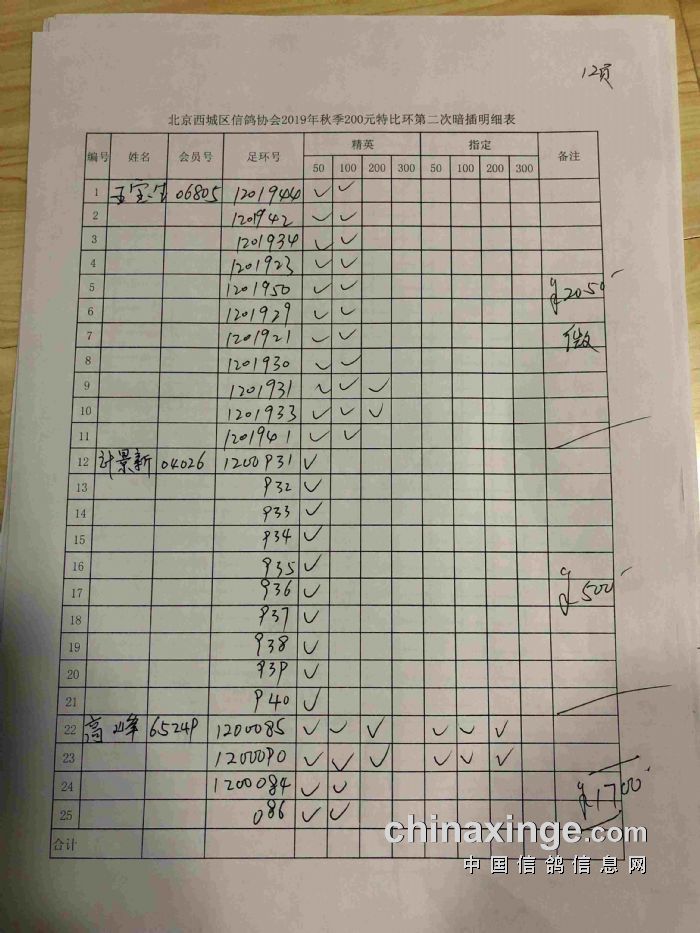 12页
北京西城区信鸽协会2019年秋季200元特比环第二次暗插明细表
编号 姓名 会员号 足环号 精英 指定 备注
50 100 200 300 50 100 200 300
1 王宝生 06805 1201944 ✓ ✓
2 1201942 ✓ ✓
3 1201934 ✓ ✓
4 1201923 ✓ ✓
5 1201950 ✓ ✓ 2050
6 1201929 ✓ ✓
7 1201921 ✓ ✓ 微
8 1201930 ✓ ✓
9 1201931 ✓ ✓ ✓
10 1201933 ✓ ✓ ✓
11 1201941 ✓ ✓
12 计景新 04026 1200931 ✓
13 932 ✓
14 933 ✓
15 934 ✓
16 935 ✓
17 936 ✓ 500
18 937 ✓
19 938 ✓
20 939 ✓
21 940 ✓
22 高峰 65249 1200085 ✓ ✓ ✓ ✓ ✓ ✓
23 1200090 ✓ ✓ ✓ ✓ ✓ ✓
24 1200084 ✓ ✓ 1700
25 086 ✓ ✓
合计
chinaxinge.com
中国信鸽信息网